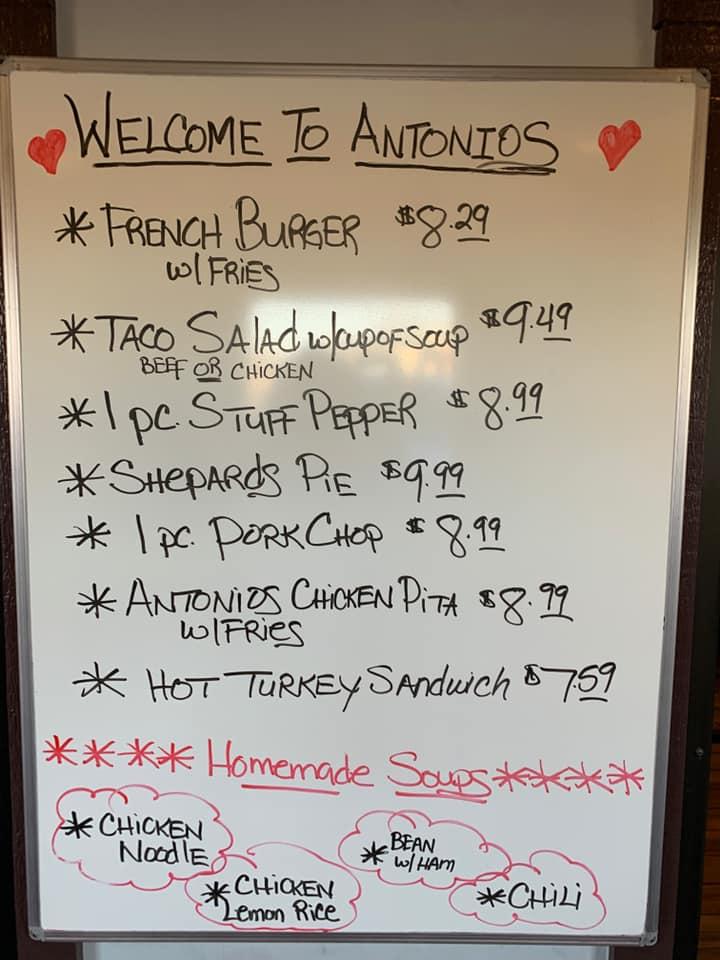 WELCOME TO ANTONIOS
* FRENCH BURGER $8.29
w/ FRIES
* TACO SALAD w/cup of soup $9.49
BEEF OR CHICKEN
* 1 pc. STUFF PEPPER $8.99
* SHEPARDS PIE $9.99
* 1 pc. PORK CHOP $8.99
* ANTONIOS CHICKEN PITA $8.99
w/FRIES
* HOT TURKEY SANDWICH $7.59
**** Homemade Soups ****
* CHICKEN
NOODLE
* CHICKEN
Lemon Rice
* BEAN
w/ HAM
* CHILI